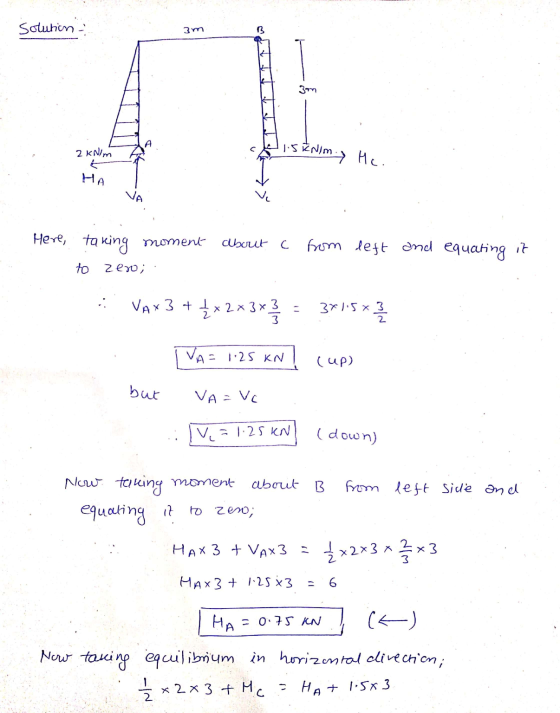 Solution :-
3m
B
3m
2 KN/m
A
C
1.5 KN/m
HC.
HA
VA
VC
Here, taking moment about C from left and equating it
to zero;
∴ VA×3 + 1/2 × 2 × 3 × 3/3 = 3×1.5 × 3/2
VA = 1.25 KN (up)
but VA = VC
∴ VC = 1.25 KN (down)
Now taking moment about B from left side and
equating it to zero;
∴ HA×3 + VA×3 = 1/2 ×2×3 × 2/3 ×3
HA×3 + 1.25×3 = 6
HA = 0.75 KN (←)
Now taking equilibrium in horizontal direction;
1/2 ×2×3 + HC = HA + 1.5×3